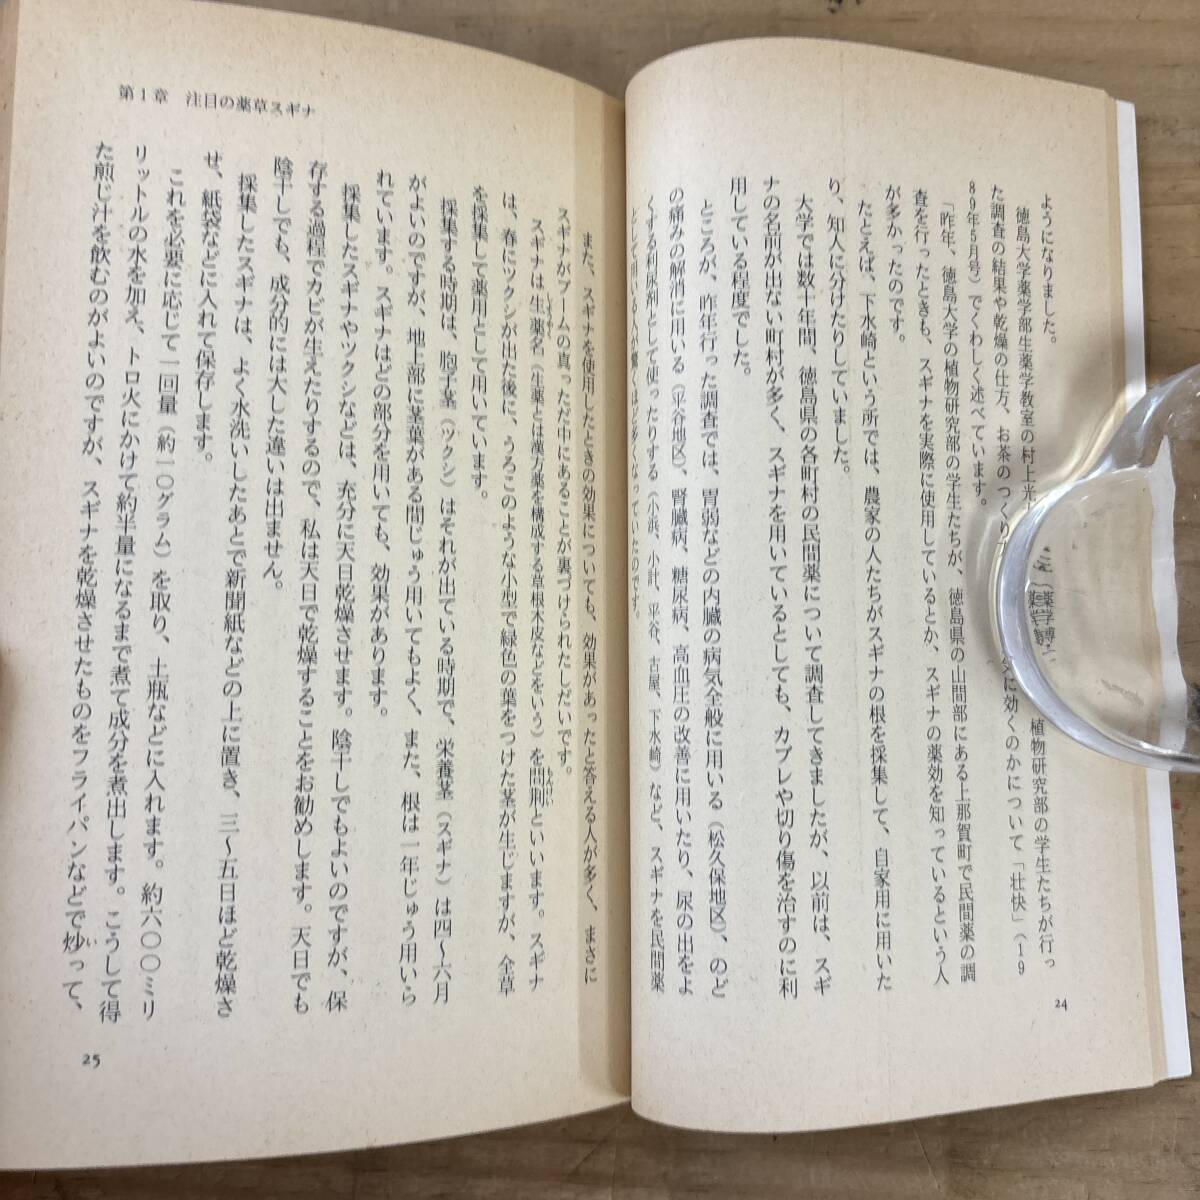 ようになりました。
徳島大学薬学部生薬学教室の村上光 植物研究部の学生たちが行っ
た調査の結果や乾燥の仕方、お茶のつくり に効くのかについて「壮快」（19
89年5月号）でくわしく述べています。
「昨年、徳島大学の植物研究部の学生たちが、徳島県の山間部にある上那賀町で民間薬の調
査を行ったときも、スギナを実際に使用しているとか、スギナの薬効を知っているという人
が多かったのです。
たとえば、下水崎という所では、農家の人たちがスギナの根を採集して、自家用に用いた
り、知人に分けたりしていました。
大学では数十年間、徳島県の各町村の民間薬について調査してきましたが、以前は、スギ
ナの名前が出ない町村が多く、スギナを用いているとしても、カブレや切り傷を治すのに利
用している程度でした。
ところが、昨年行った調査では、胃弱などの内臓の病気全般に用いる（松久保地区）、のど
の痛みの解消に用いる（平谷地区）、腎臓病、糖尿病、高血圧の改善に用いたり、尿の出をよ
くする利尿剤として使ったりする（小浜、小計、平谷、古屋、下水崎）など、スギナを民間薬
として用いる人が驚くほど多くなっていたのです。
24
第1章 注目の薬草スギナ
また、スギナを使用したときの効果についても、効果があったと答える人が多く、まさに
スギナがブームの真っただ中にあることが裏づけられたしだいです。
スギナは生薬名（生薬とは漢方薬を構成する草根木皮などをいう）を問荊といいます。スギナ
は、春にツクシが出た後に、うろこのような小型で緑色の葉をつけた茎が生じますが、全草
を採集して薬用として用いています。
採集する時期は、胞子茎（ツクシ）はそれが出ている時期で、栄養茎（スギナ）は四〜六月
がよいのですが、地上部に茎葉がある間じゅう用いてもよく、また、根は一年じゅう用いら
れています。スギナはどの部分を用いても、効果があります。
採集したスギナやツクシなどは、充分に天日乾燥させます。陰干しでもよいのですが、保
存する過程でカビが生えたりするので、私は天日で乾燥することをお勧めします。天日でも
陰干しでも、成分的には大した違いは出ません。
採集したスギナは、よく水洗いしたあとで新聞紙などの上に置き、三〜五日ほど乾燥さ
せ、紙袋などに入れて保存します。
これを必要に応じて一回量（約一〇グラム）を取り、土瓶などに入れます。約六〇〇ミリ
リットルの水を加え、トロ火にかけて約半量になるまで煮て成分を煮出します。こうして得
た煎じ汁を飲むのがよいのですが、スギナを乾燥させたものをフライパンなどで炒って、
25